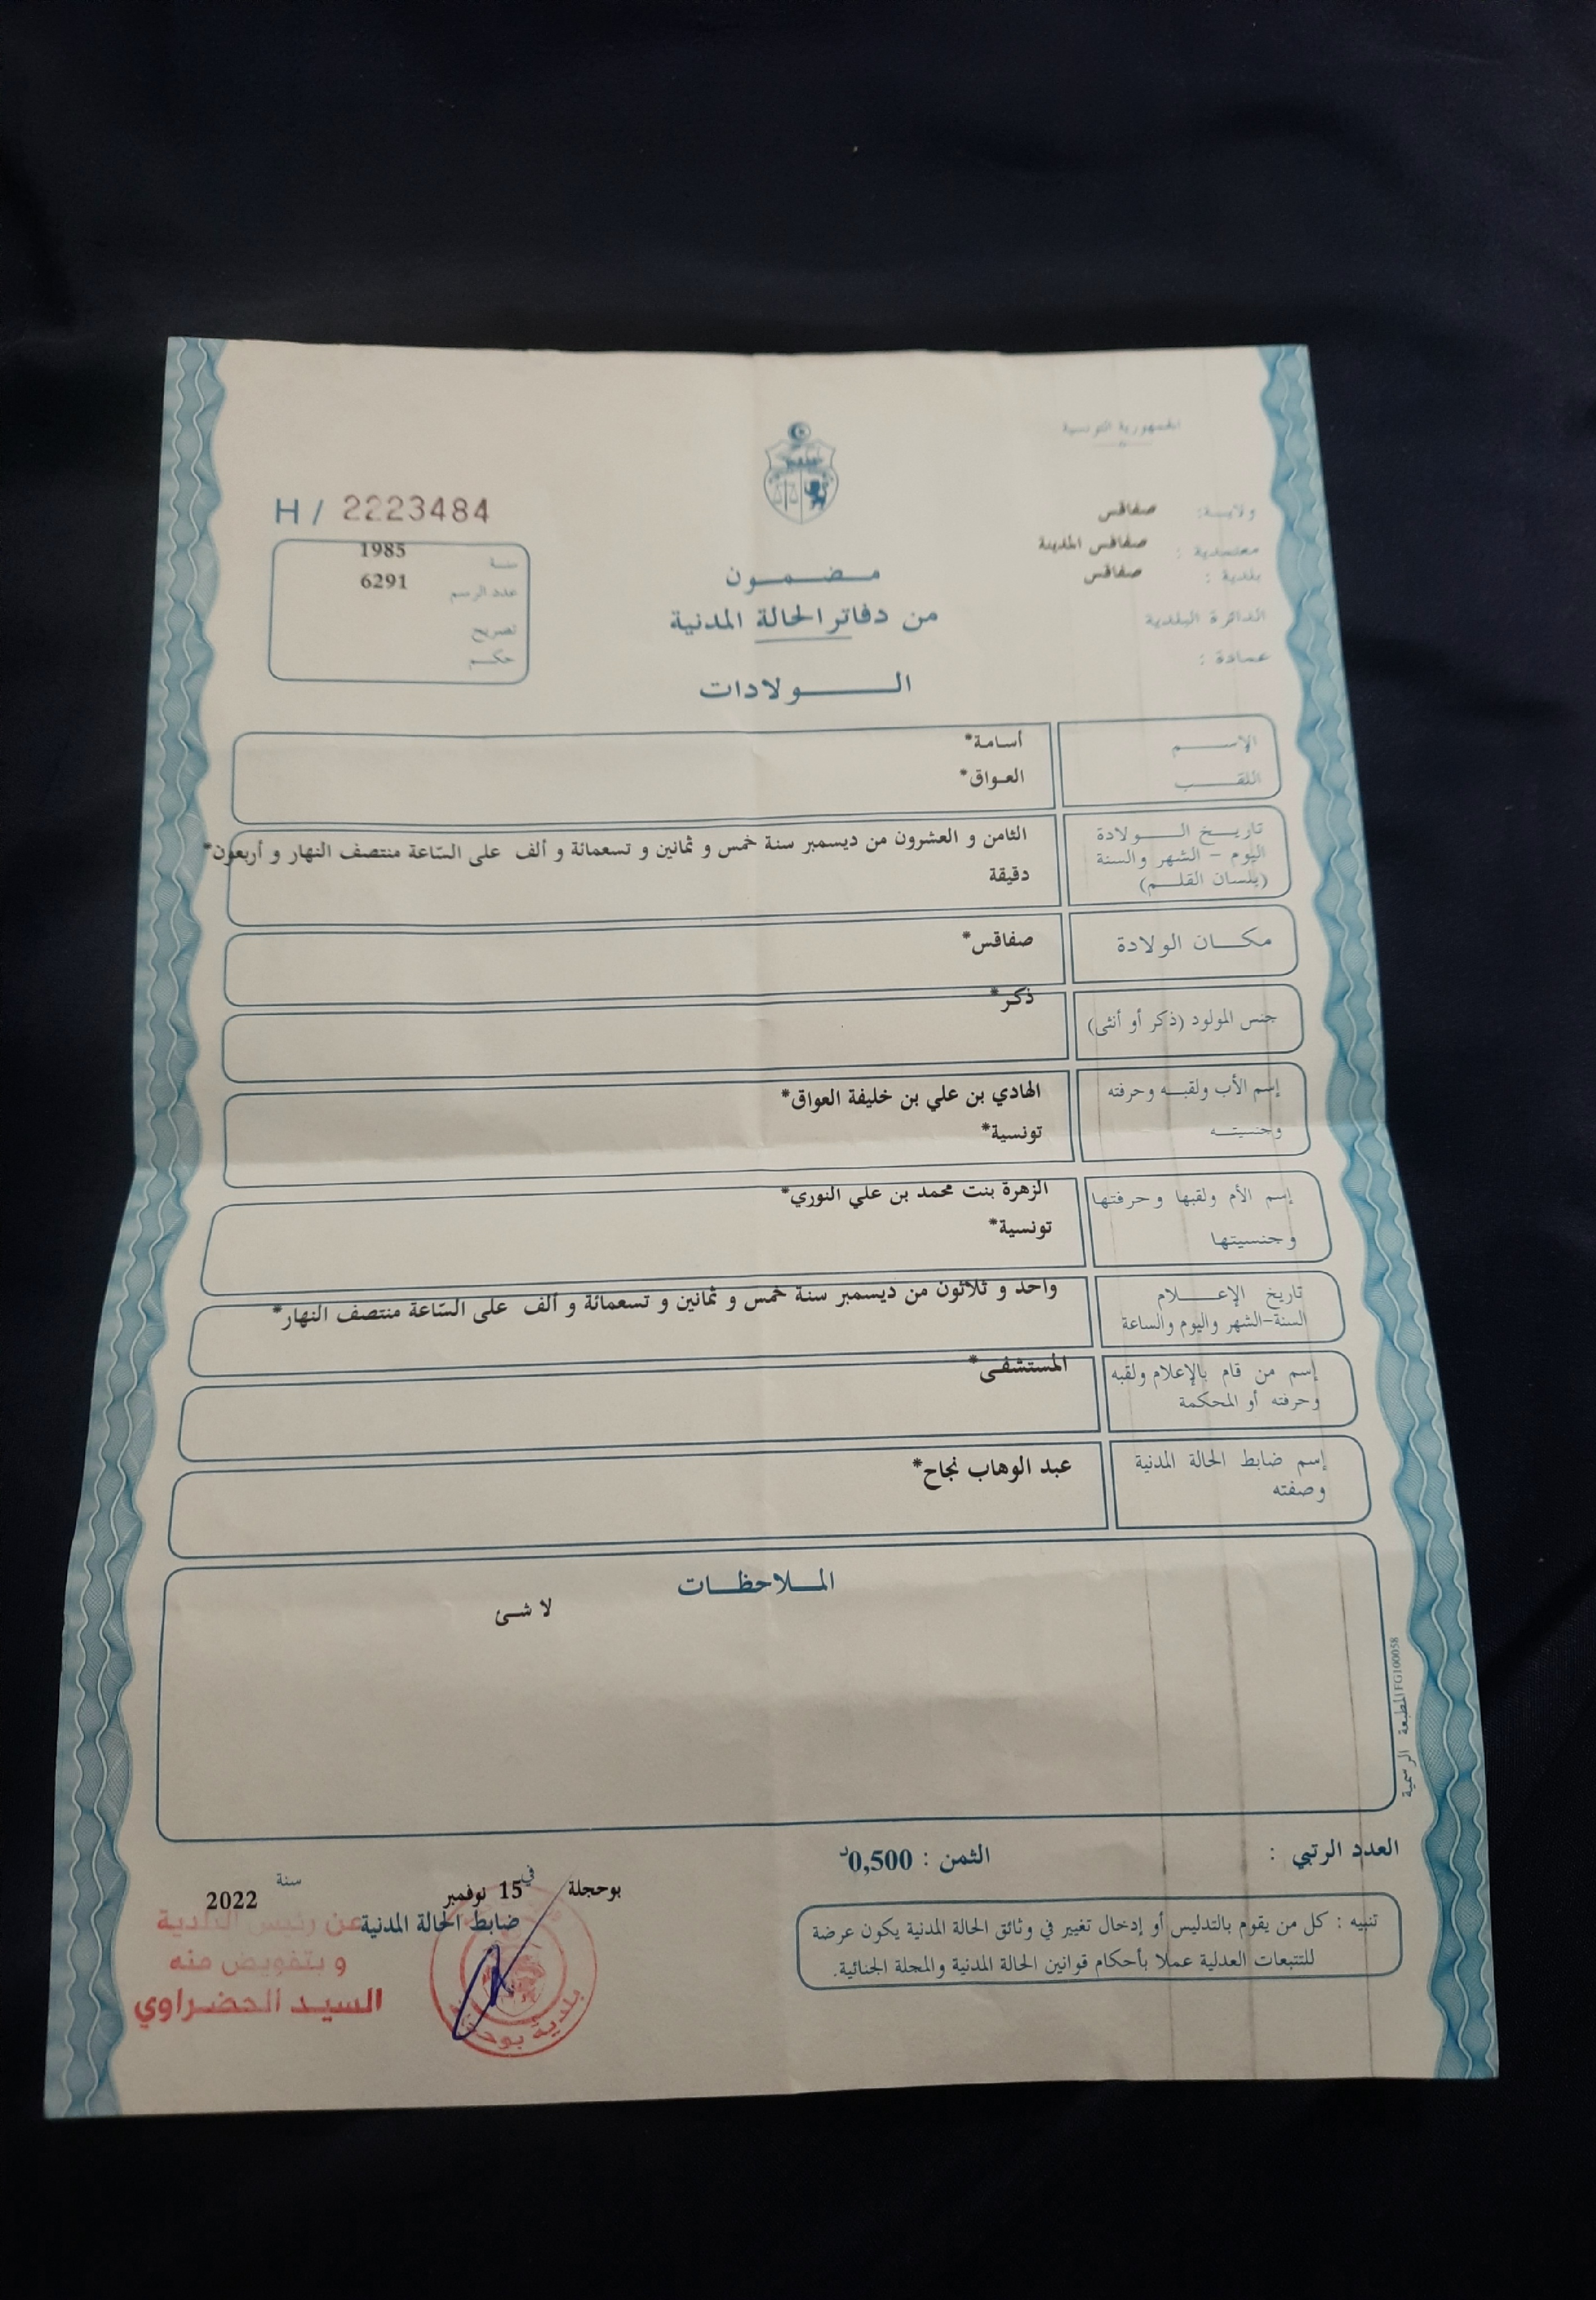 الجمهورية التونسية
H / 2223484
ولاية: صفاقس
معتمدية : صفاقس المدينة
بلدية : صفاقس
الدائرة البلدية
عمادة :
سنة 1985
عدد الرسم 6291
تصريح
حكم
مضمون
من دفاتر الحالة المدنية
الولادات
الإسم أسامة*
اللقب العواق*
تاريخ الولادة
اليوم - الشهر والسنة
(بلسان القلم)
الثامن و العشرون من ديسمبر سنة خمس و ثمانين و تسعمائة و ألف على السّاعة منتصف النهار و أربعون*
دقيقة
مكان الولادة صفاقس*
جنس المولود (ذكر أو أنثى) ذكر*
إسم الأب ولقبه وحرفته الهادي بن علي بن خليفة العواق*
وجنسيته تونسية*
إسم الأم ولقبها وحرفتها الزهرة بنت محمد بن علي النوري*
وجنسيتها تونسية*
تاريخ الإعلام
السنة-الشهر واليوم والساعة
واحد و ثلاثون من ديسمبر سنة خمس و ثمانين و تسعمائة و ألف على السّاعة منتصف النهار*
إسم من قام بالإعلام ولقبه
وحرفته أو المحكمة
المستشفى*
إسم ضابط الحالة المدنية
وصفته
عبد الوهاب نجاح*
الملاحظات
لا شئ
المطبعة الرسمية FG100058
العدد الرتبي :
الثمن : 0,500د
بوحجلة في 15 نوفمبر سنة 2022
ضابط الحالة المدنية
عن رئيس البلدية
و بتفويض منه
السيد الحضراوي
بلدية بوحجلة
تنبيه : كل من يقوم بالتدليس أو إدخال تغيير في وثائق الحالة المدنية يكون عرضة
للتتبعات العدلية عملا بأحكام قوانين الحالة المدنية والمجلة الجنائية.